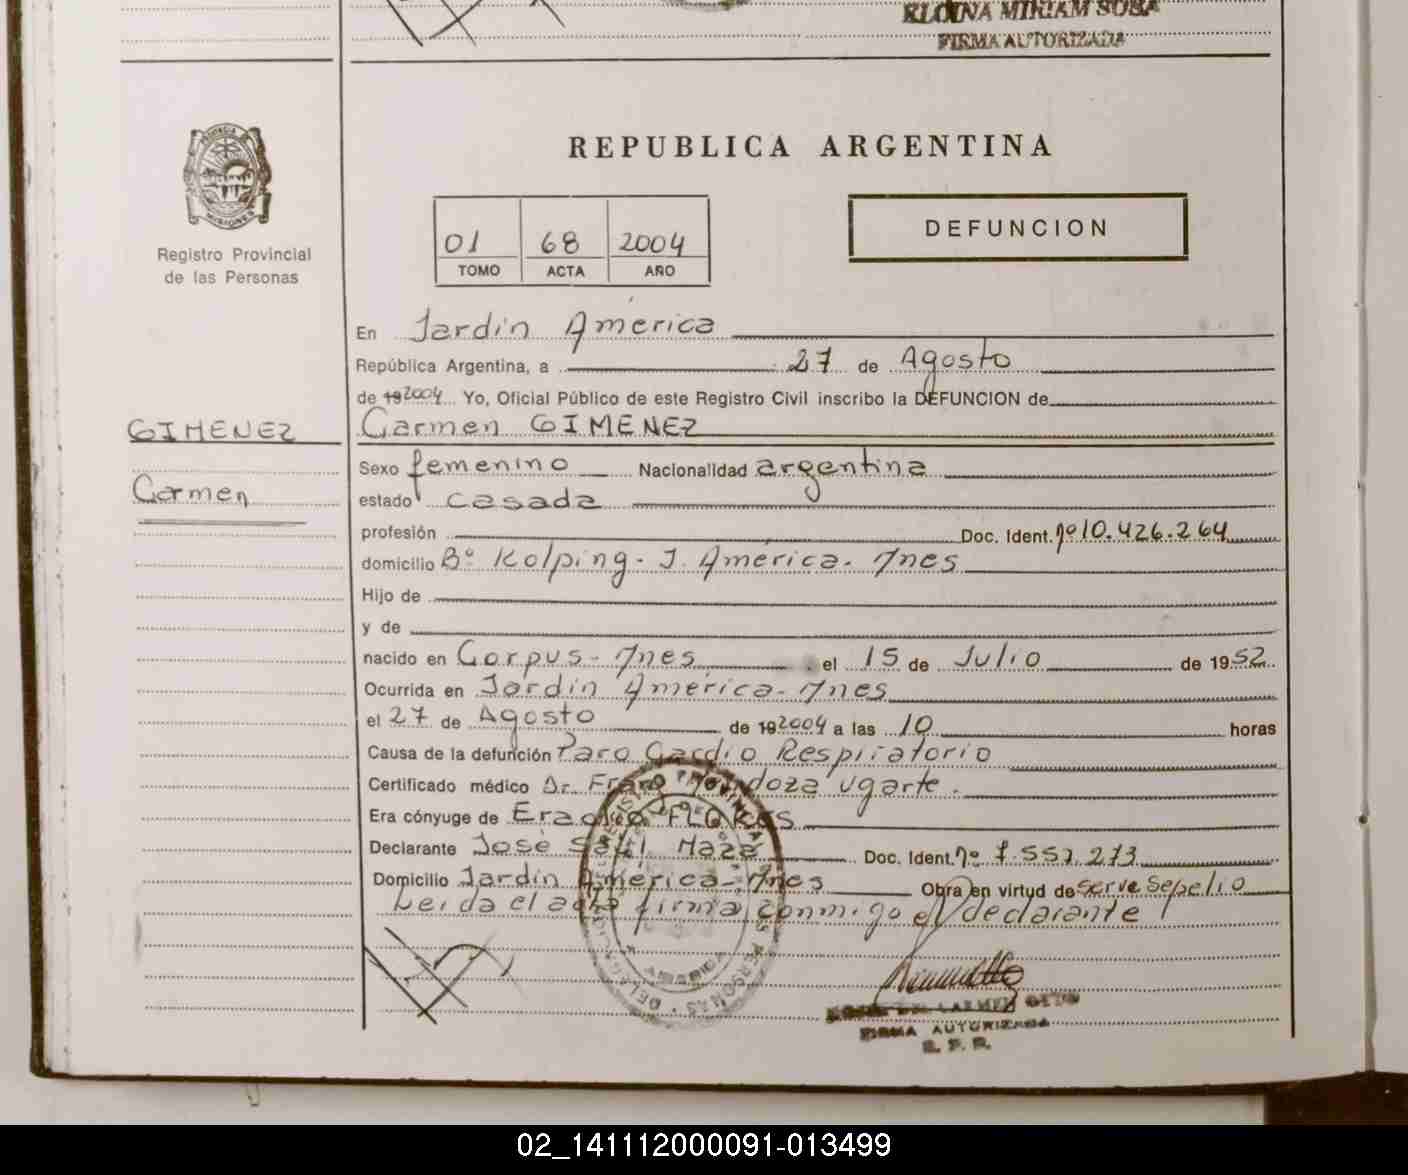 ELOINA MIRIAM SOSA
FIRMA AUTORIZADA
PROVINCIA DE
MISIONES
Registro Provincial
de las Personas
REPUBLICA ARGENTINA
01 68 2004
TOMO ACTA AÑO
DEFUNCION
En Jardín América
República Argentina, a 27 de Agosto
de 19 2004 Yo, Oficial Público de este Registro Civil inscribo la DEFUNCION de
GIMENEZ
Carmen GIMENEZ
Sexo femenino Nacionalidad argentina
Carmen
estado casada
profesión Doc. Ident. nº 10.426.264
domicilio Bº Kolping - J. América - Mnes
Hijo de
y de
nacido en Corpus - Mnes el 15 de Julio de 1952
Ocurrida en Jardín América - Mnes
el 27 de Agosto de 19 2004 a las 10 horas
Causa de la defunción Paro Cardio Respiratorio
Certificado médico Dr. Ugarte.
Era cónyuge de FLORES
Declarante José Saúl Maza Doc. Ident. nº 7.557.273
Domicilio Jardín América - Mnes Obra en virtud de serv e sepelio
Leida el acta firma conmigo el declarante
CARMEN
FIRMA AUTORIZADA
R. P. P.
02_141112000091-013499